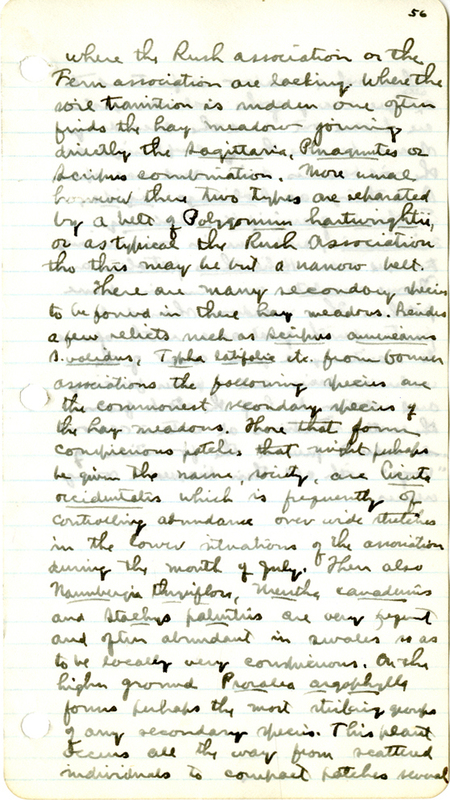 56
where the Rush association or the
Fern association are lacking. Where the
soil transition is sudden one often
finds the hay meadow joining
directly the Sagittaria, Phragmites or
Scirpus combination. More usual
however these two types are separated
by a belt of Polygonum hartwrightii,
or as typical the Rush Association
tho this may be but a narrow belt.
There are many secondary species
to be found in these hay meadows. Besides
a few relicts such as Scirpus americanus
S. validus, Typha latifolia etc. from former
associations the following species are
the commonest secondary species of
the hay meadows. Those that form
conspicuous patches that might perhaps
be given the name, society, are Cicuta
occidentalis which is frequently of
controlling abundance over wide stretches
in the lower situations of the association
during the month of July. Then also
Naumbergia thrysiflora, Mentha canadensis
and Stachys palustris are very frequent
and often abundant in swales so as
to be locally very conspicuous. On the
higher ground Psoralea argophylla
forms perhaps the most striking groups
of any secondary species. This plant
occurs all the way from scattered
individuals to compact patches several